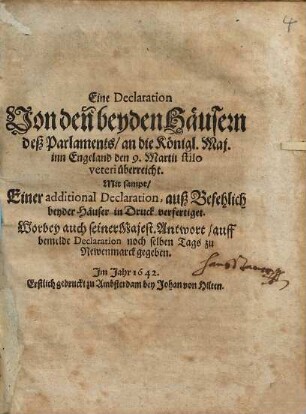 4
Eine Declaration
Von deñ beyden Häusern
deß Parlaments/ an die Königl. Maj.
inn Engeland den 9. Martii stilo
veteri überreicht.
Mit sampt/
Einer additional Declaration, auß Befehlich
beyder Häuser in Druck verfertiget.
Worbey auch seiner Majest. Antwort/ auff
bemelde Declaration noch selben Tags zu
Newenmarck gegeben.
Im Jahr 1642.
Erstlich gedruckt zu Ambsterdam bey Johan von Hilten.